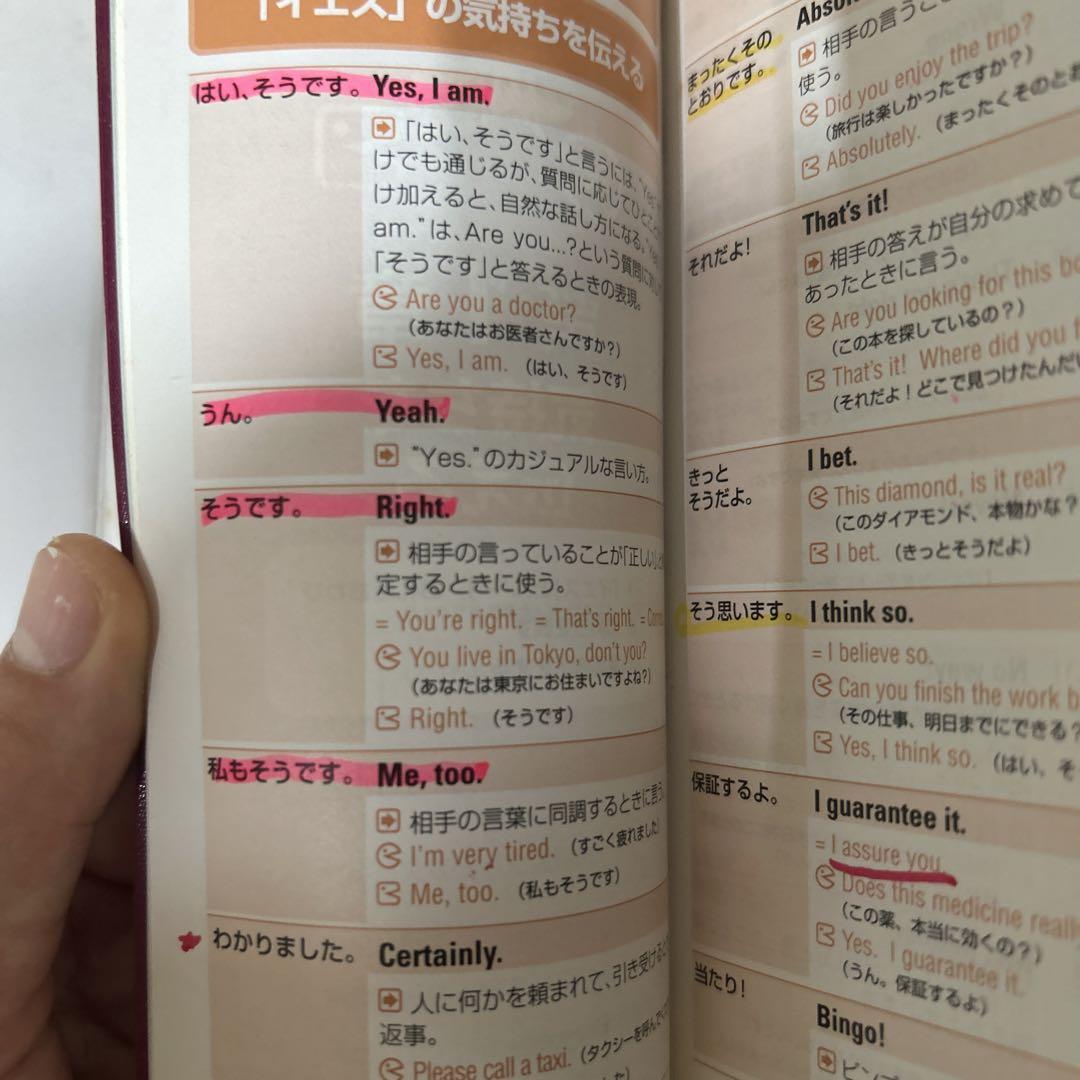 「イエス」の気持ちを伝える
はい、そうです。 Yes, I am.
「はい、そうです」と言うには、"Yes"
けでも通じるが、質問に応じてひとこと
け加えると、自然な話し方になる。"Yes
am."は、Are you...?という質問に対し
「そうです」と答えるときの表現。
Are you a doctor?
(あなたはお医者さんですか?)
Yes, I am. (はい、そうです)
うん。 Yeah.
"Yes."のカジュアルな言い方。
そうです。 Right.
相手の言っていることが「正しい」と
定するときに使う。
= You're right. = That's right. =
You live in Tokyo, don't you?
(あなたは東京にお住まいですよね?)
Right. (そうです)
私もそうです。 Me, too.
相手の言葉に同調するときに言う
I'm very tired. (すごく疲れました)
Me, too. (私もそうです)
わかりました。 Certainly.
人に何かを頼まれて、引き受けると
返事。
Please call a taxi. (タクシーを呼んで
まったくその
とおりです。
相手の言うこ
使う。
Did you enjoy the trip?
(旅行は楽しかったですか?)
Absolutely. (まったくそのとお
それだよ! That's it!
相手の答えが自分の求めて
あったときに言う。
Are you looking for this
(この本を探しているの?)
That's it! Where did you
(それだよ!どこで見つけたんだい
きっと
そうだよ。 I bet.
This diamond, is it real?
(このダイアモンド、本物かな?
I bet. (きっとそうだよ)
そう思います。 I think so.
= I believe so.
Can you finish the work b
(その仕事、明日までにできる?
Yes, I think so. (はい、そ
保証するよ。 I guarantee it.
= I assure you.
Does this medicine really
(この薬、本当に効くの?)
Yes. I guarantee it.
(うん。保証するよ)
当たり! Bingo!